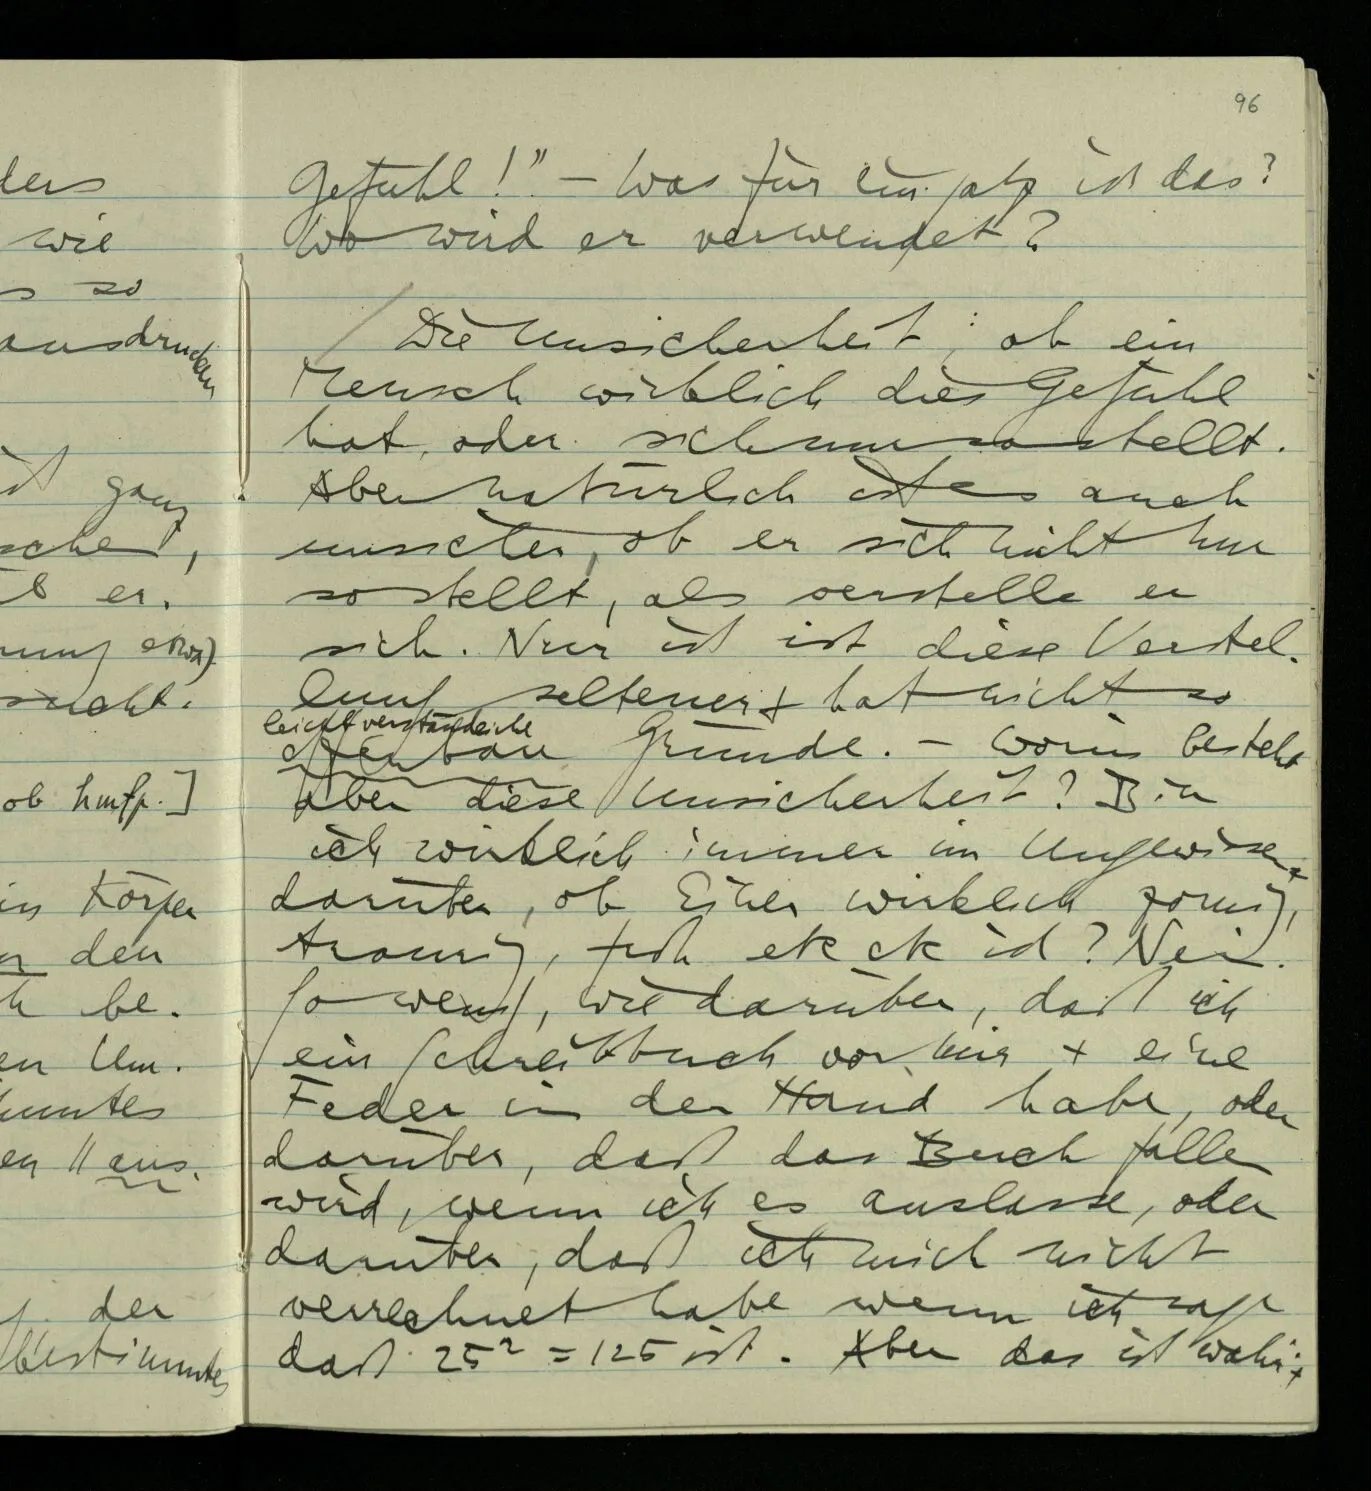 ders
wie
s so
ausdrucken
ist ganz
er.
etwa)
sucht.
ob
Körper
den
be.
en Um.
en
aus.
der
bestimmtes
96
Gefühl!" – Was für ein Satz ist das?
Wo wird er verwendet?
/ Die Unsicherheit, ob ein
Mensch wirklich dies Gefühl
hat, oder sich nur so stellt.
Aber natürlich ist es auch
unsicher, ob er sich nicht nur
so stellt, als verstelle er
sich. Nur ist ist diese Verstel-
lung seltener + hat nicht so
leicht verständliche
offenbare Gründe. – Worin besteht
aber diese Unsicherheit? Bin
ich wirklich immer im Ungewissen
darüber, ob Einer wirklich zornig,
traurig, froh etc etc ist? Nein.
So wenig, wie darüber, daß ich
ein Schreibbuch vor mir + eine
Feder in der Hand habe, oder
darüber, daß das Buch fallen
wird, wenn ich es auslasse, oder
darüber, daß ich mich nicht
verrechnet habe wenn ich sage
daß 25² = 125 ist. Aber das ist wahr: